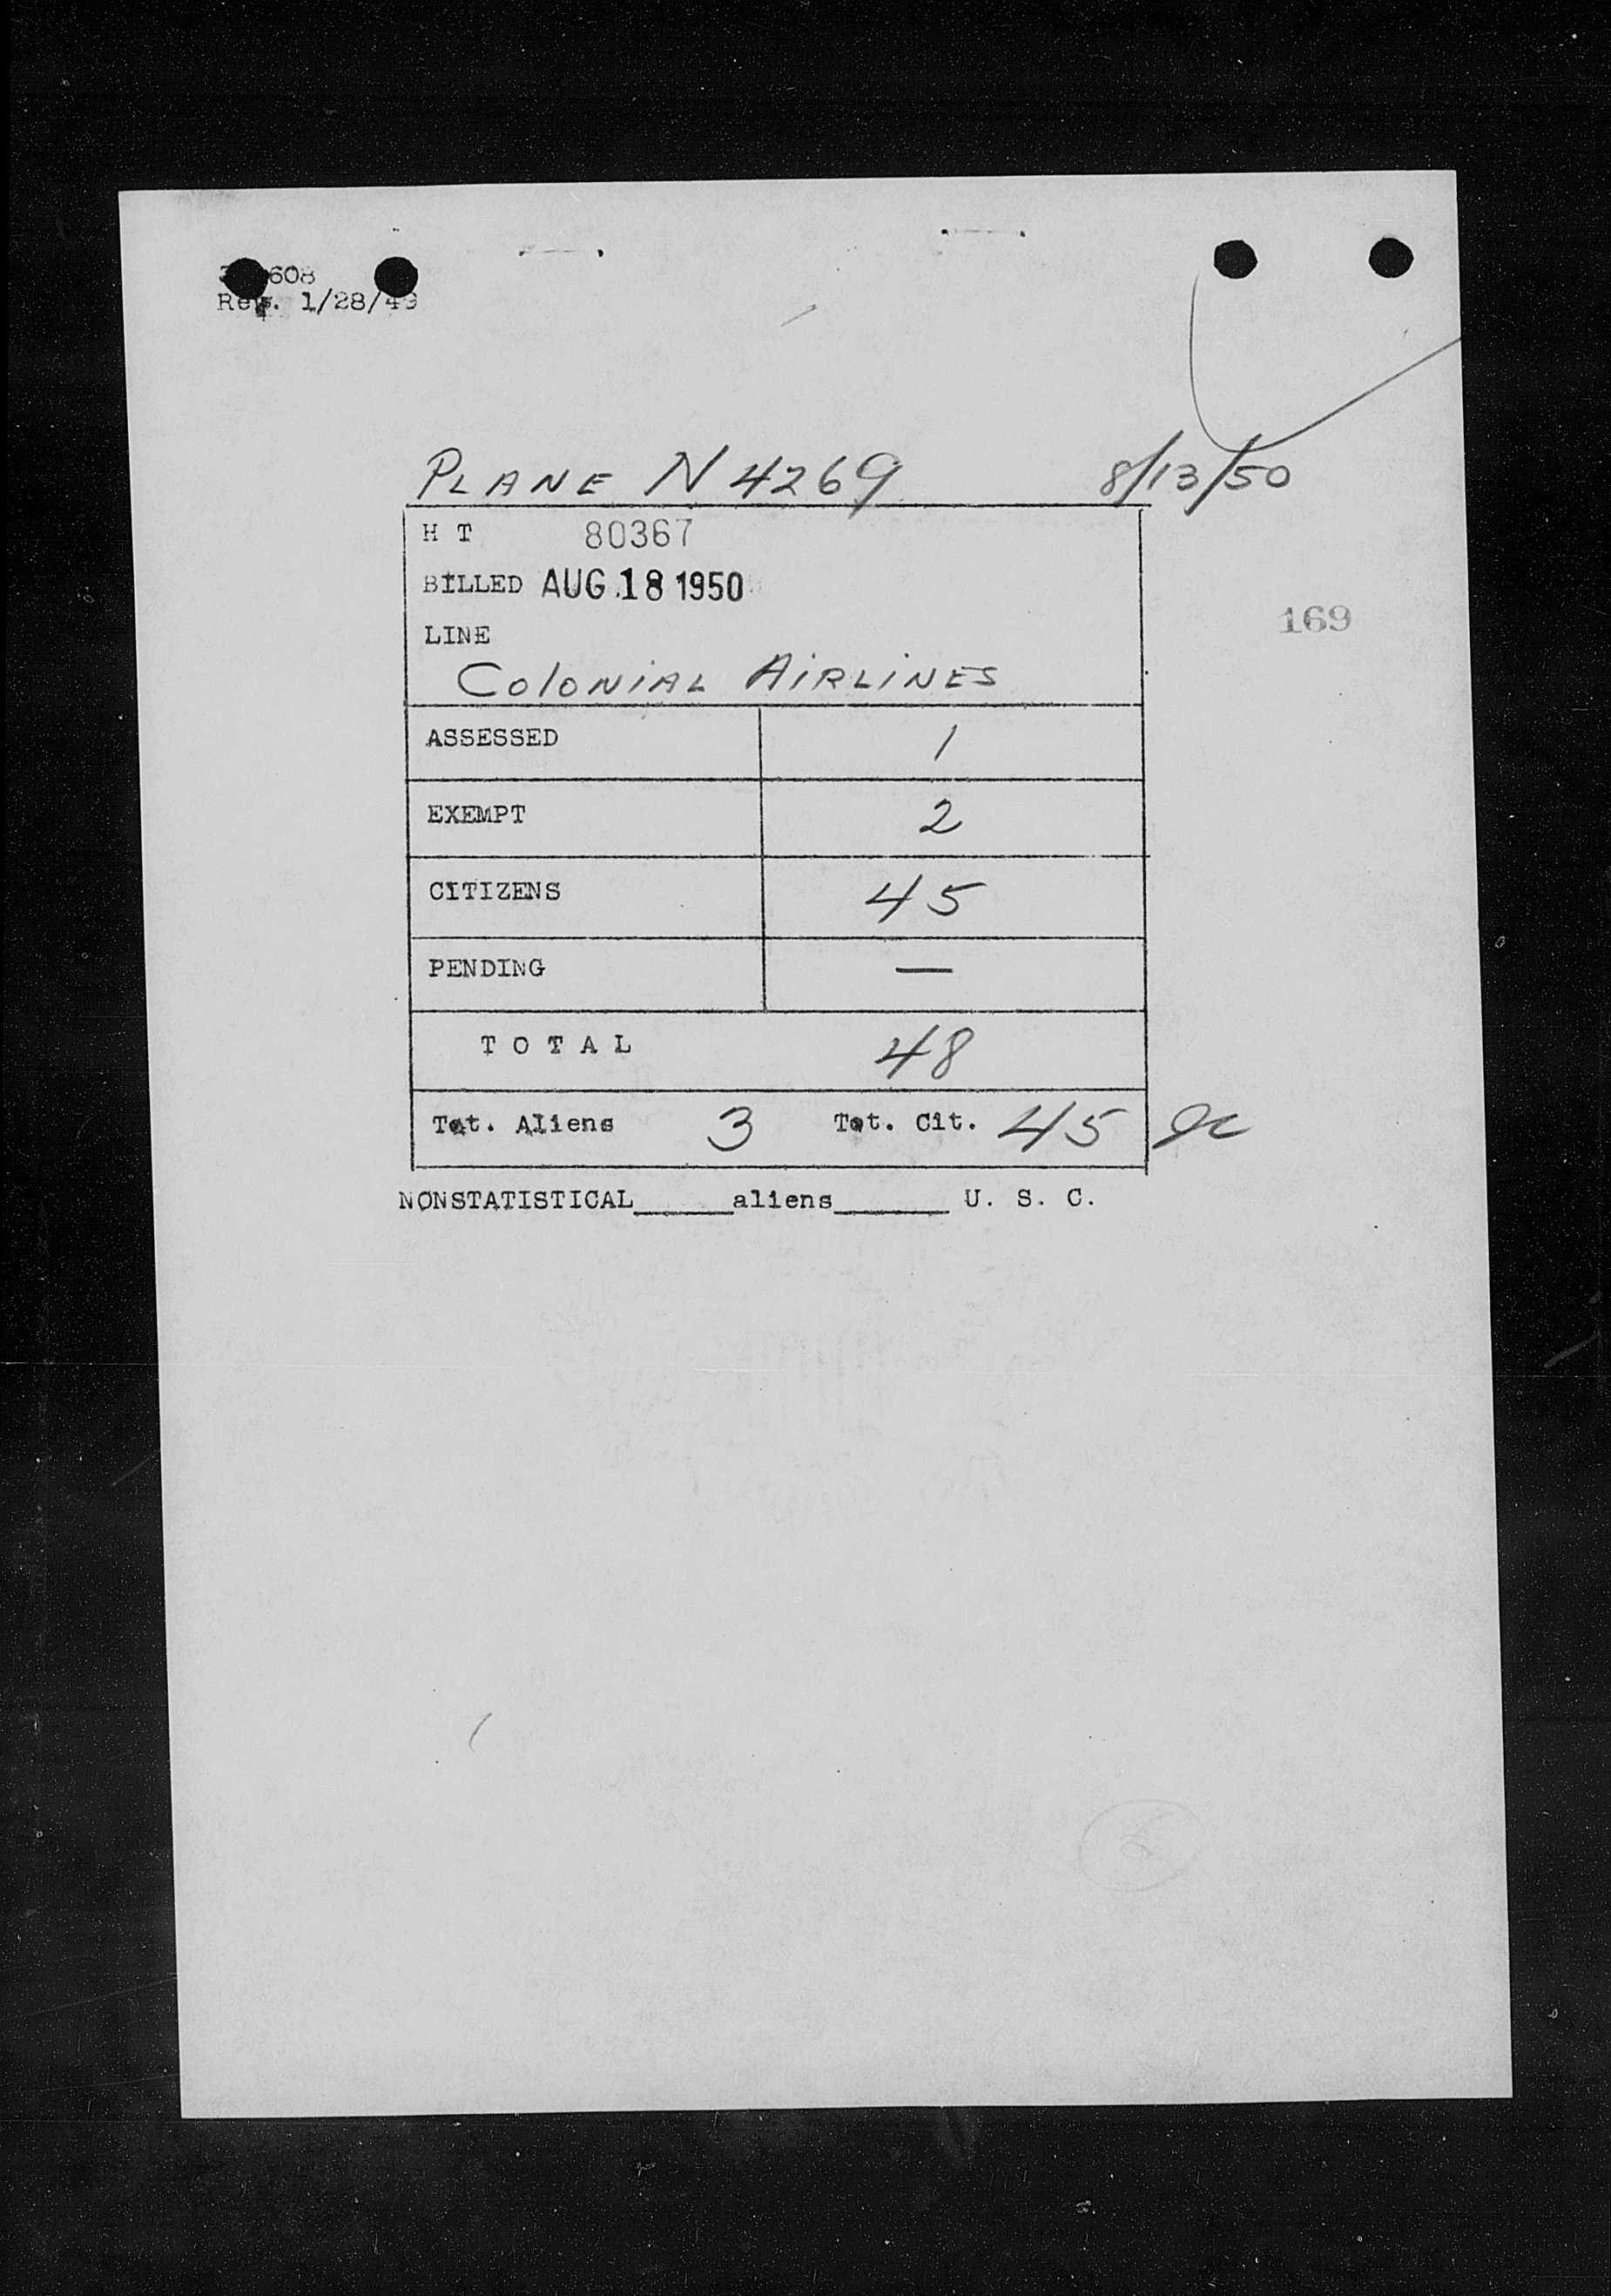 608
Rev. 1/28/49
PLANE N4269 8/13/50
H T 80367
BILLED AUG 18 1950
169
LINE
COLONIAL AIRLINES
ASSESSED 1
EXEMPT 2
CITIZENS 45
PENDING —
T O T A L 48
Tot. Aliens 3 Tot. Cit. 45
NONSTATISTICAL______aliens_______ U. S. C.